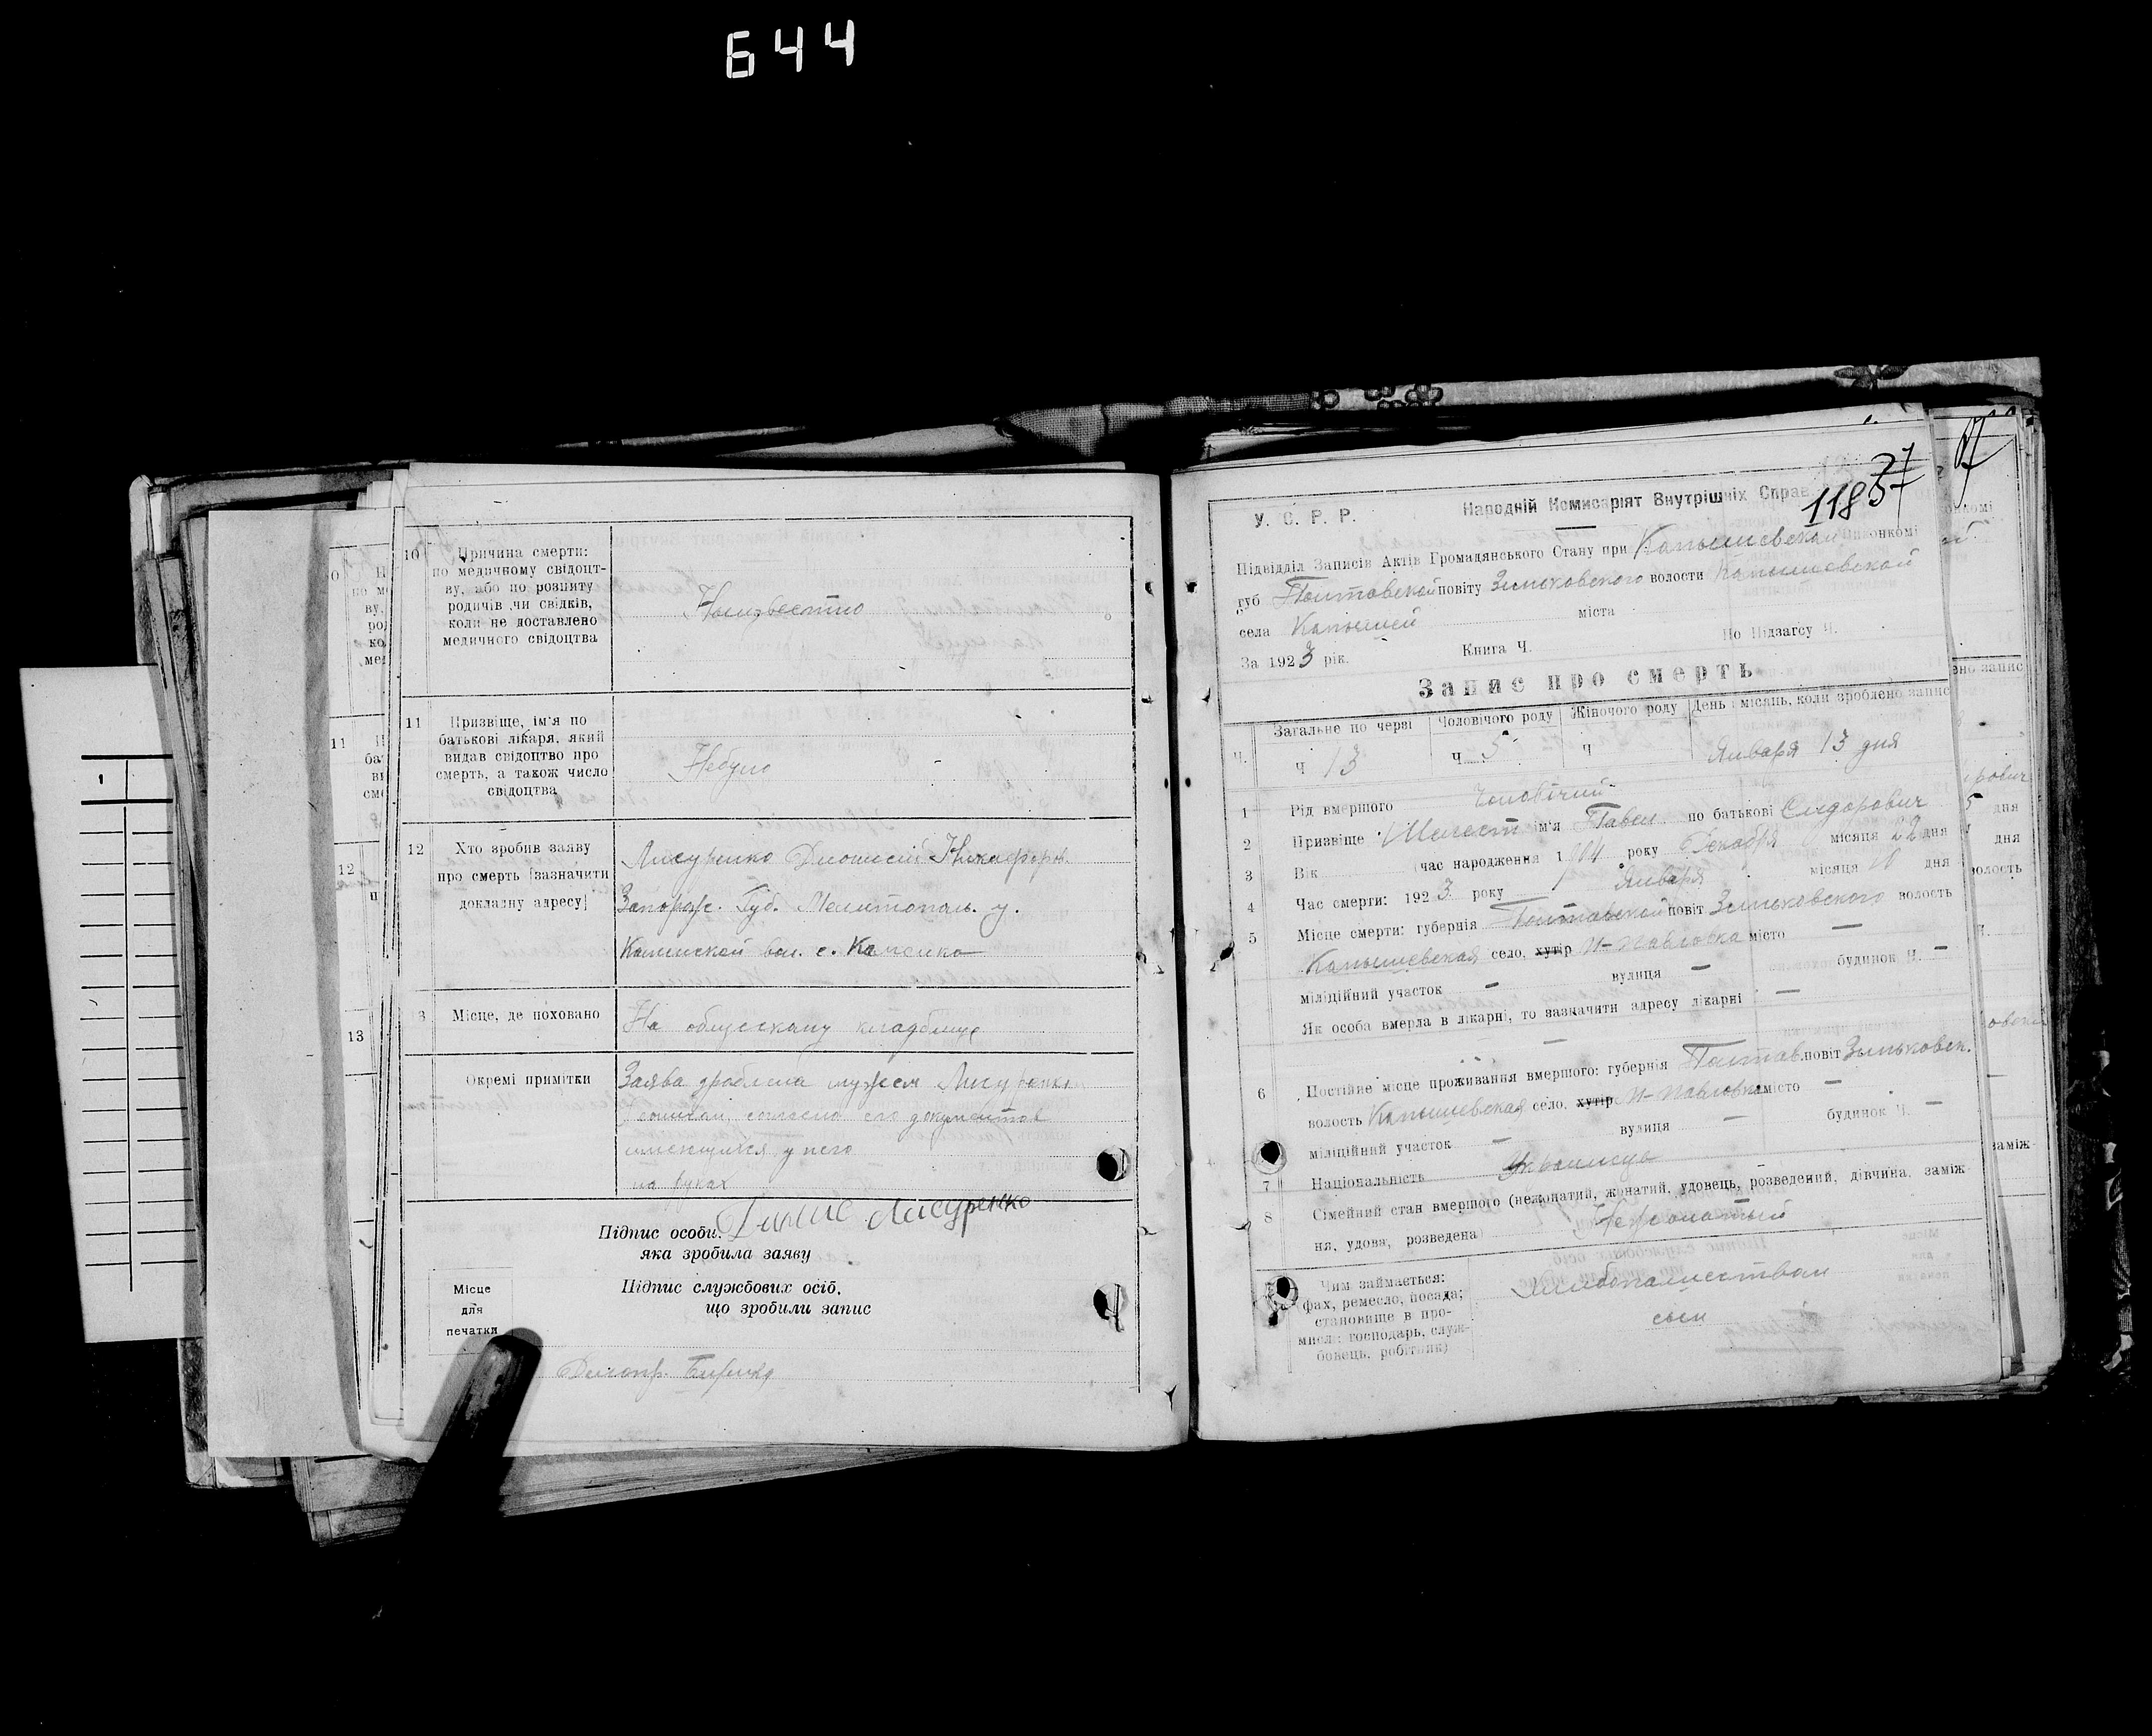 644
10
Причина смерти:
по медичному свідоцт-
ву, або по розпиту
родичів чи свідків,
коли не доставлено
медичного свідоцтва
Неизвестно
11
Призвіще, ім'я по
батькові лікаря, який
видав свідоцтво про
смерть, а також число
свідоцтва
Небуло
12
Хто зробив заяву
про смерть (зазначити
докладну адресу)
Лисуренко Дионисий Никифоров.
Запорож. Губ. Мелитополь. у.
вол. с. Каменка
13
Місце, де поховано
На кладбище
Окремі примітки
Заява зроблена мужем Лисуренко
согласно его документов
имеющихся у него
на руках
Підпис особи, Лисуренко
яка зробила заяву
Підпис службових осіб,
що зробили запис
Місце
для
печатки
37
1185
У. С. Р. Р.
Народній Комисаріят Внутрішніх Справ
Підвідділ Записів Актів Громадянського Стану при Виконкомі
губ Полтавской повіту Зиньковского волости
села міста
За 1923 рік. Книга Ч. По Підзагсу Ч.
Запис про смерть
Ч. Загальне по черзі Чоловічого роду Жіночого роду День і місяць, коли зроблено запис
Ч 13 Ч 5 Ч Января 13 дня
1 Рід вмершого Чоловічий
2 Призвіще Шелест ім'я Павел по батькові Сидорович
3 Вік (час народження 1904 року Декабря місяця 22 дня
4 Час смерти: 1923 року Января місяця 10 дня
5 Місце смерти: губернія Полтавской повіт Зиньковского волость
село, хутір Н-Павловка місто —
міліційний участок — вулиця — будинок Ч. —
Як особа вмерла в лікарні, то зазначити адресу лікарні —
6 Постійне місце проживання вмершого: губернія Полтав. повіт Зиньковск.
волость село, хутір Н-Павловка місто —
міліційний участок — вулиця — будинок Ч. —
7 Національність Украинець
8 Сімейний стан вмершого (нежонатий, жонатий, удовець, розведений, дівчина, заміж-
ня, удова, розведена) Нежонатый
Чим займається:
фах, ремесло, посада;
становище в про-
мислі: господарь, служ-
бовець, робітник)
Хлебопашеством
сын